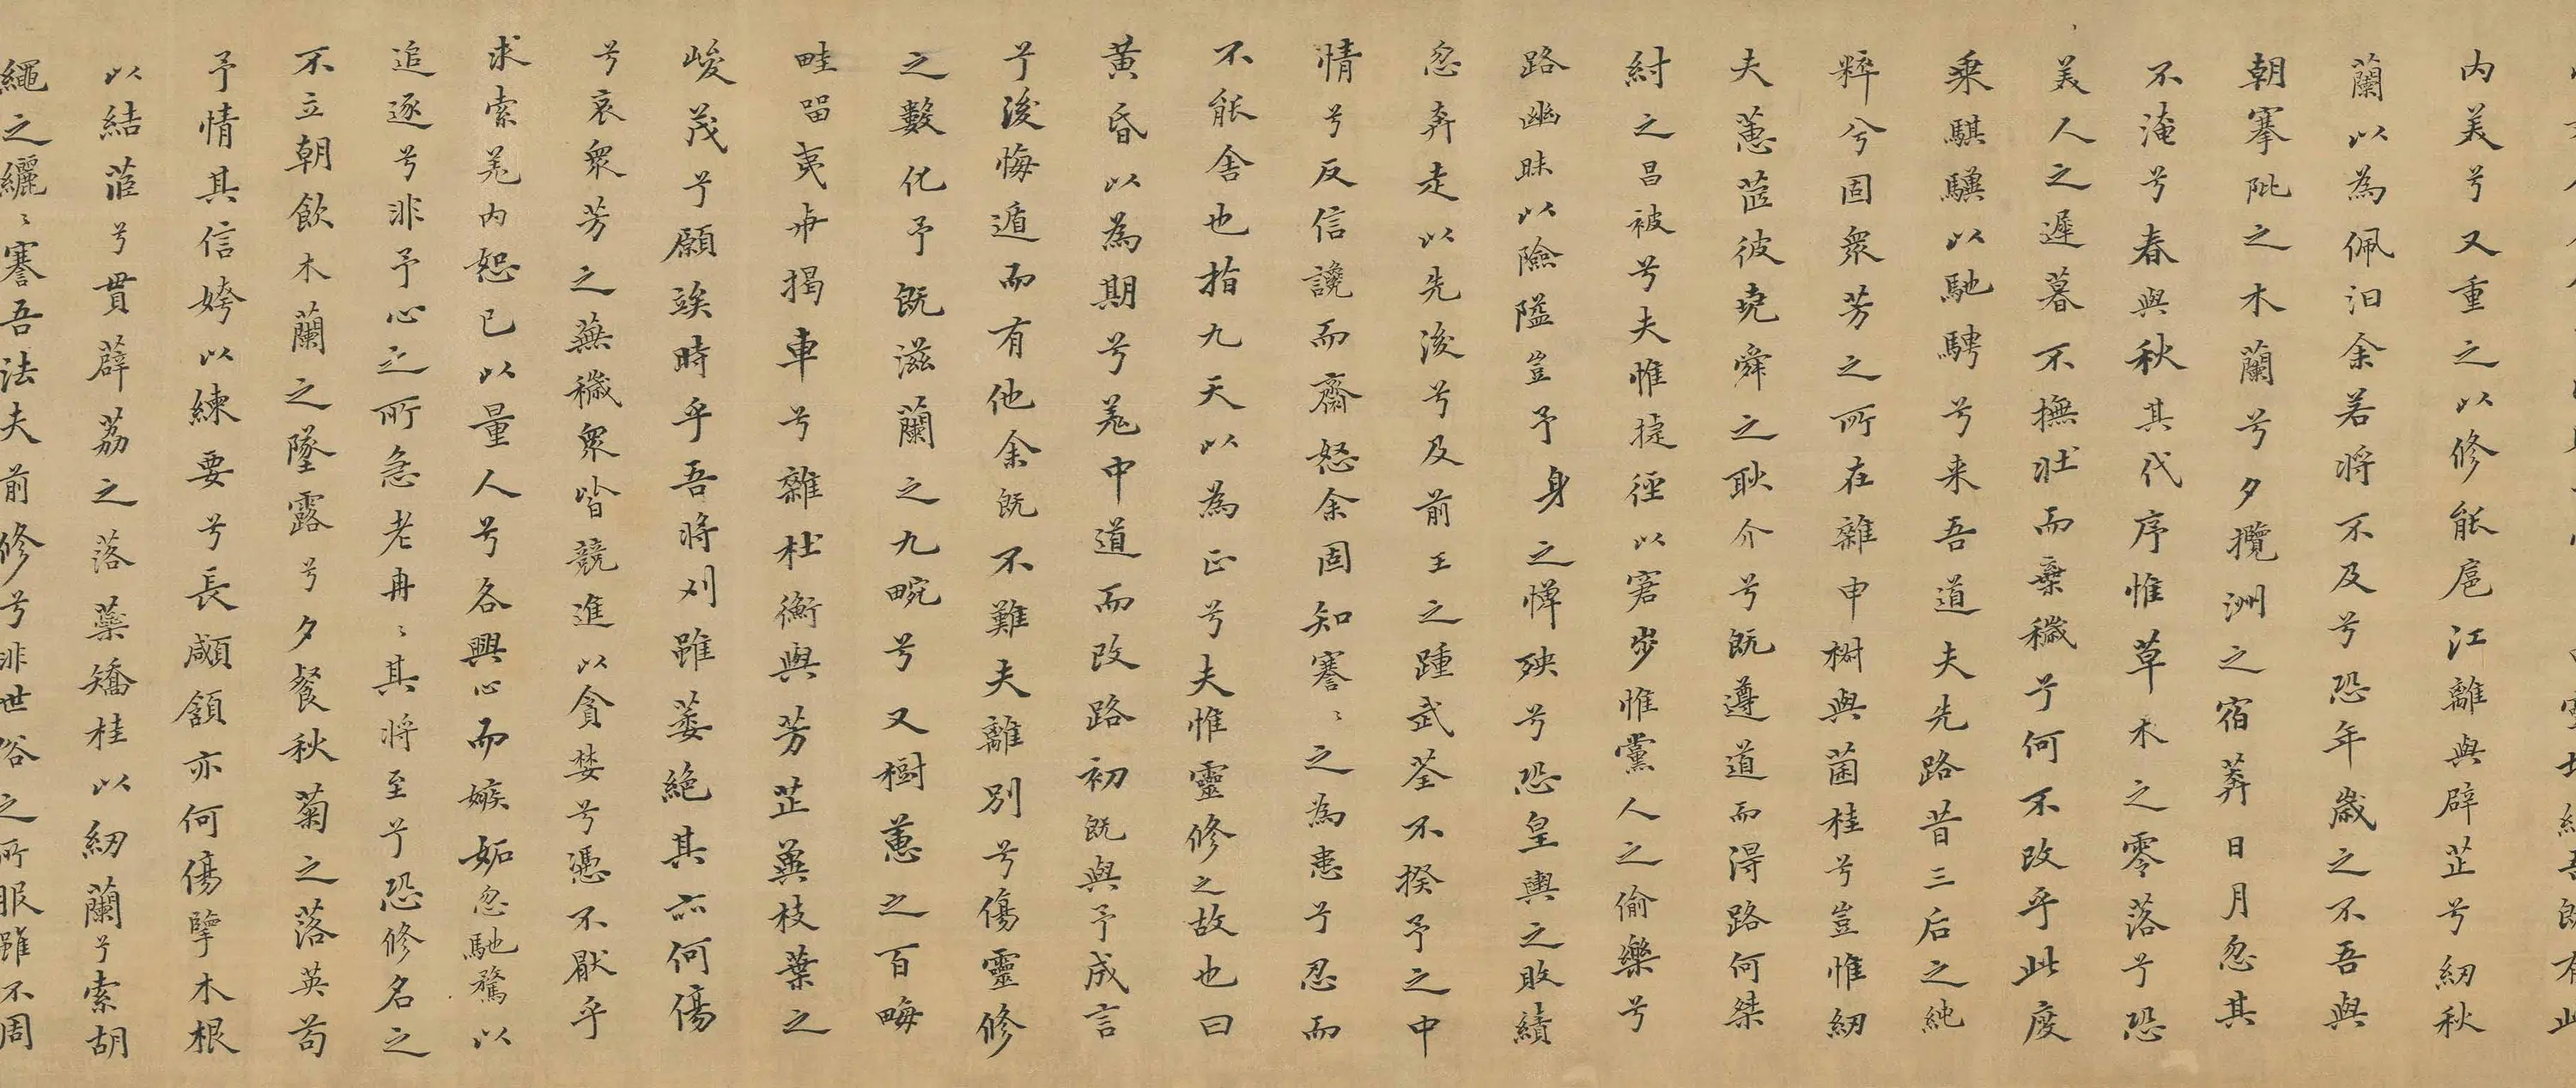 内美兮又重之以修能扈江離與辟芷兮紉秋
蘭以為佩汩余若將不及兮恐年歲之不吾與
朝搴阰之木蘭兮夕攬洲之宿莽日月忽其
不淹兮春與秋其代序惟草木之零落兮恐
美人之遲暮不撫壯而棄穢兮何不改乎此度
乘騏驥以馳騁兮来吾道夫先路昔三后之純
粹兮固衆芳之所在雜申椒與菌桂兮豈惟紉
夫蕙茝彼堯舜之耿介兮既遵道而得路何桀
紂之昌被兮夫惟捷徑以窘步惟黨人之偷樂兮
路幽昧以險隘豈予身之憚殃兮恐皇輿之敗績
忽奔走以先後兮及前王之踵武荃不揆予之中
情兮反信讒而齋怒余固知謇〻之為患兮忍而
不能舍也指九天以為正兮夫惟靈修之故也曰
黃昏以為期兮羌中道而改路初既與予成言
兮後悔遁而有他余既不難夫離別兮傷靈修
之數化予既滋蘭之九畹兮又樹蕙之百畮
畦留夷與揭車兮雜杜衡與芳芷冀枝葉之
峻茂兮願竢時乎吾將刈雖萎絶其亦何傷
兮哀衆芳之蕪穢衆皆競進以貪婪兮憑不猒乎
求索羌内恕己以量人兮各興心而嫉妬忽馳騖以
追逐兮非予心之所急老冉〻其將至兮恐修名之
不立朝飲木蘭之墜露兮夕餐秋菊之落英苟
予情其信姱以練要兮長顑頷亦何傷擥木根
以結茝兮貫薜荔之落蘂矯桂以紉蘭兮索胡
繩之纚〻謇吾法夫前修兮非世俗之所服雖不周